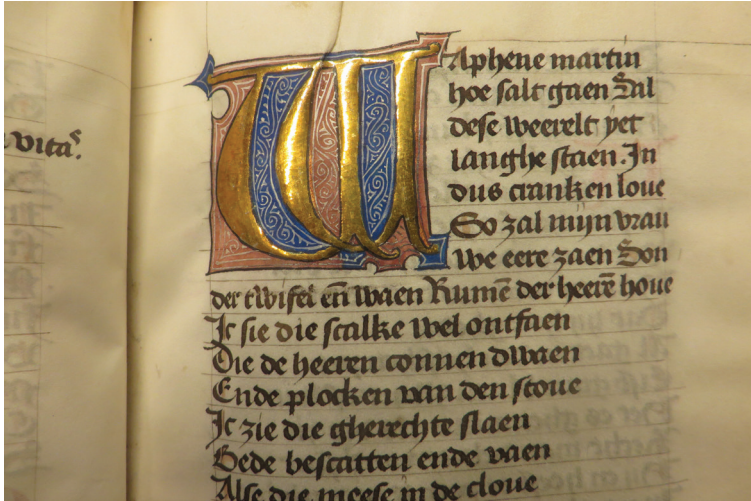 vitaꝭ.
Waphene martin
hoe salt gaen Sal
dese weerelt yet
langhe staen. In
dus cranken loue
So zal mijn vrau
we eere zaen Son
der twifel en̄ waen Rumē der heerē houe
Ic sie die scalke wel ontfaen
Die de heeren connen dwaen
Ende plocken van den stoue
Ic zie die gherechte slaen
Bede bescatten ende vaen
Alse die meese in de cloue